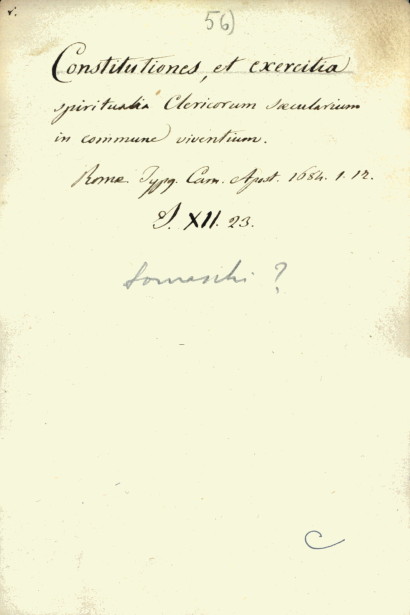 v.
56)
Constitutiones, et exercitia
spiritualia Clericorum sæcularium
in commune viventium.
Romæ Typg. Cam. Apost. 1684. 1. 12.
S. XII. 23.
Somaschi ?
C